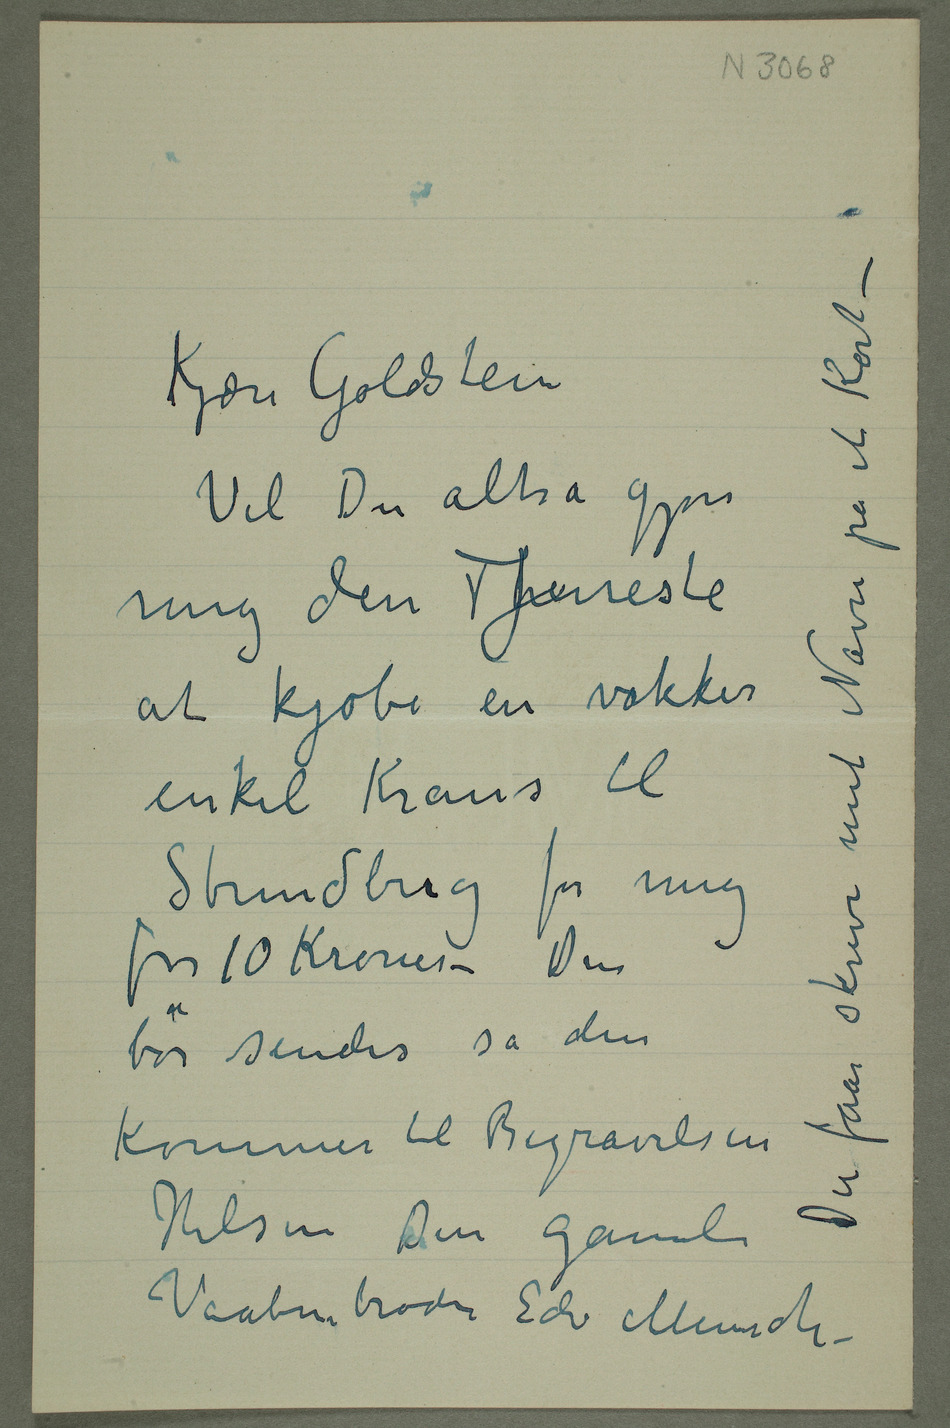 N 3068
Kjære Goldstein
Vil Du altsa gjøre
mig den Tjeneste
at kjøbe en vakker
enkel Krans til
Strindberg for mig
for 10 Kroner – Den
bör sendes sa den
kommer til Begravelsen
Hilsen Din gamle
Vaabenbroder Edv Munch –
Du faar skrive mit Navn pa et Kort –